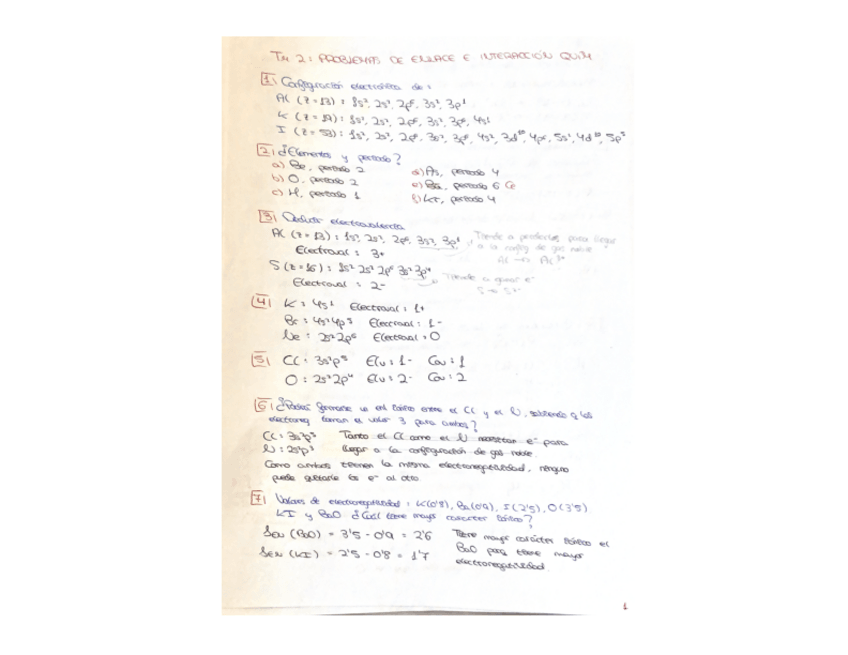 TM 2: PROBLEMAS DE ENLACE E INTERACCIÓN QUIM
1) Configuración electrónica de:
Al (Z=13): 1s², 2s², 2p⁶, 3s², 3p¹
K (Z=19): 1s², 2s², 2p⁶, 3s², 3p⁶, 4s¹
I (Z=53): 1s², 2s², 2p⁶, 3s², 3p⁶, 4s², 3d¹⁰, 4p⁶, 5s², 4d¹⁰, 5p⁵
2) ¿Elementos y periodo?
a) Be, periodo 2 d) As, periodo 4
b) O, periodo 2 e) periodo 6
c) H, periodo 1 f) Kr, periodo 4
3) Deducir electrovalencia
Al (Z=13): 1s², 2s², 2p⁶, 3s², 3p¹ Tiende a perderlos para llegar
a la config de gas noble
Electroval: 3+ Al → Al³⁺
S (Z=16): 1s² 2s² 2p⁶ 3s² 3p⁴ Tiende a ganar e⁻
Electroval: 2- S → S²⁻
4) K: 4s¹ Electroval: 1+
Br: 4s² 4p⁵ Electroval: 1-
Ne: 2s² 2p⁶ Electroval: 0
5) Cl: 3s² p⁵ Elv: 1- Cov: 1
O: 2s² 2p⁴ Elv: 2- Cov: 2
6) ¿Podrá formarse un enl iónico entre el Cl y el N, sabiendo q los
electroneg tienen el valor 3 para ambos?
Cl: 3s² p⁵ Tanto el Cl como el N necesitan e⁻ para
N: 2s² p³ llegar a la configuración de gas noble.
Como ambos tienen la misma electronegatividad, ninguno
puede quitarle los e⁻ al otro
7) Valores de electronegatividad: K(0'8), Ba(0'9), I(2'5), O(3'5)
KI y BaO ¿Cuál tiene mayor carácter iónico?
ΔEN (BaO) = 3'5 - 0'9 = 2'6 Tiene mayor carácter iónico el
ΔEN (KI) = 2'5 - 0'8 = 1'7 BaO tiene mayor
electronegatividad.
1